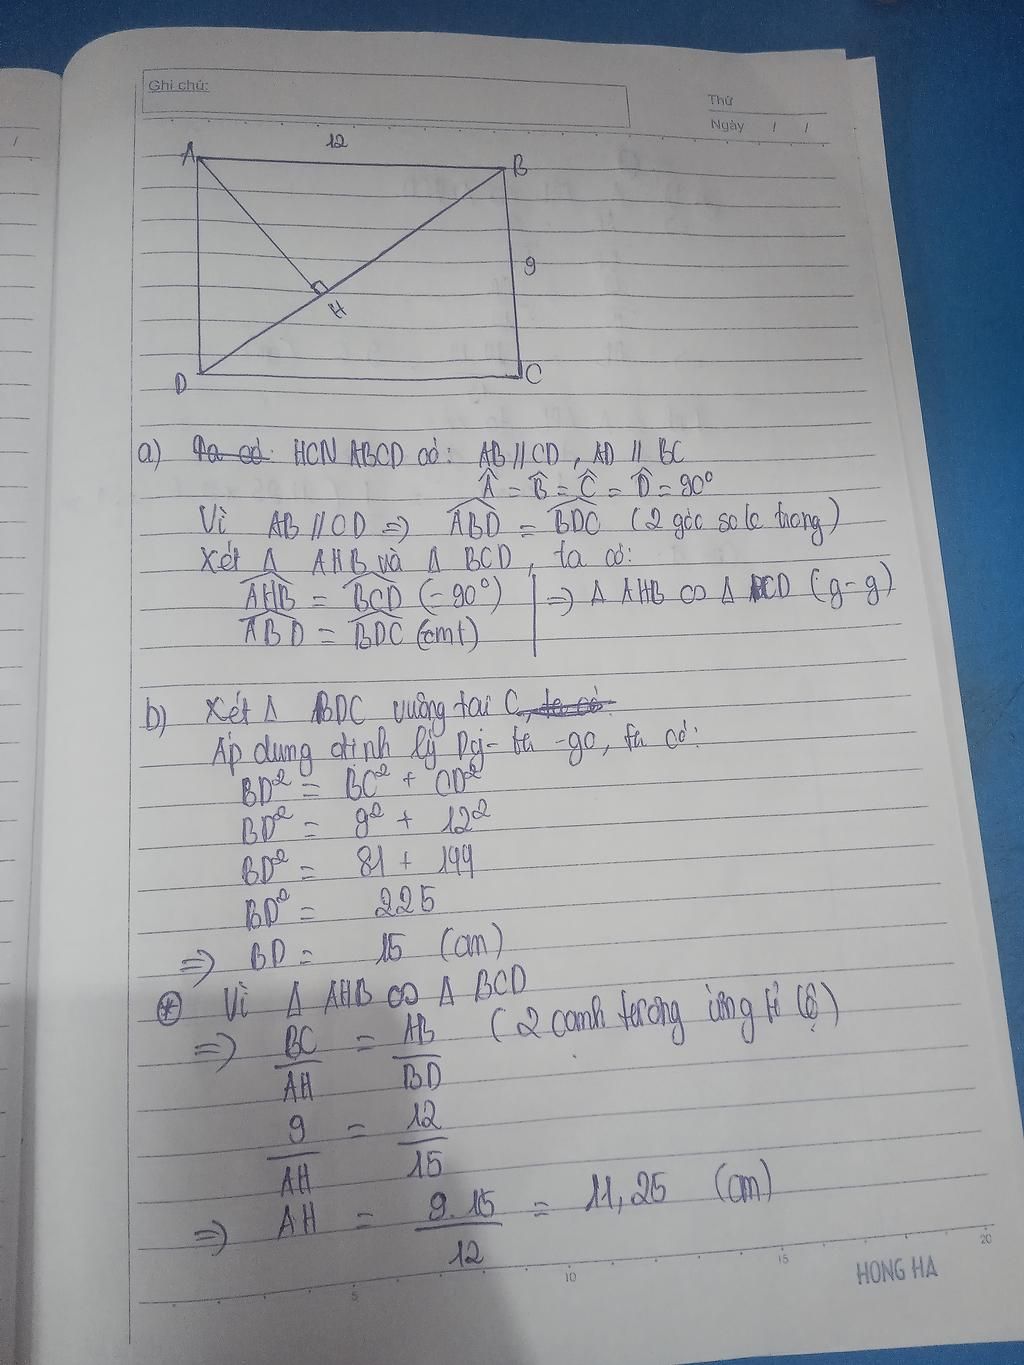 Ghi chú:
Thứ
Ngày / /
12
A
B
9
H
D
C
a) Ta có: HCN ABCD có: AB // CD, AD // BC
Â = B̂ = Ĉ = D̂ = 90°
Vì AB // CD => ABD = BDC (2 góc so le trong)
Xét Δ AHB và Δ BCD, ta có:
AHB = BCD (= 90°)
ABD = BDC (cmt)
=> Δ AHB ∽ Δ BCD (g-g)
b) Xét Δ BDC vuông tại C, ta có:
Áp dụng định lý Py-ta-go, ta có:
BD² = BC² + CD²
BD² = 9² + 12²
BD² = 81 + 144
BD² = 225
=> BD = 15 (cm)
* Vì Δ AHB ∽ Δ BCD
=> BC/AH = AB/BD (2 cạnh tương ứng tỉ lệ)
9/AH = 12/15
=> AH = 9.15/12 = 11,25 (cm)
5 10 15 20
HONG HA